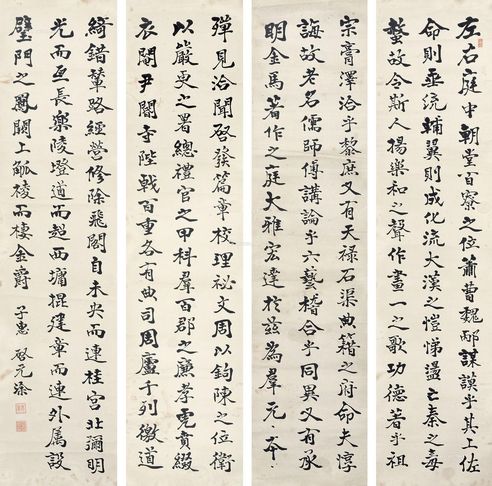 左右庭中朝堂百寮之位蕭曹魏邴謀謨乎其上佐
命則垂統輔翼則成化流大漢之愷悌盪亡秦之毒
螫故令斯人揚樂和之聲作畫一之歌功德著乎祖
宗膏澤洽乎黎庶又有天祿石渠典籍之府命夫惇
誨故老名儒師傅講論乎六藝稽合乎同異又有承
明金馬著作之庭大雅宏達於茲為羣元〻本〻
殫見洽聞啓發篇章校理祕文周以鉤陳之位衛
以嚴更之署總禮官之甲科羣百郡之廉孝虎賁綴
衣閹尹閽寺陛戟百重各有典司周廬千列徼道
綺錯輦路經營修除飛閣自未央而連桂宮北彌明
光而亙長樂陵墱道而超西墉掍建章而連外屬設
璧門之鳳闕上觚稜而棲金爵 子惠 元